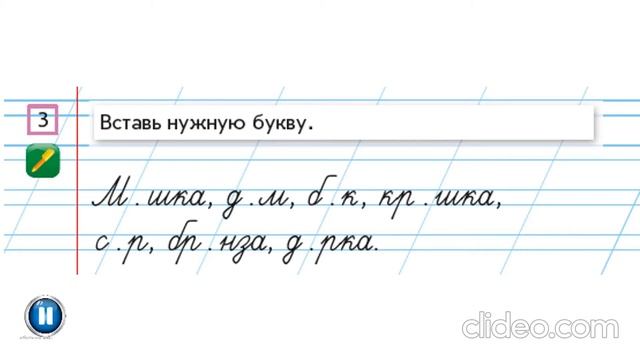 3
Вставь нужную букву.
М.шка, д.м, б.к, кр.шка,
с.р, бр.нза, д.рка.
clideo.com